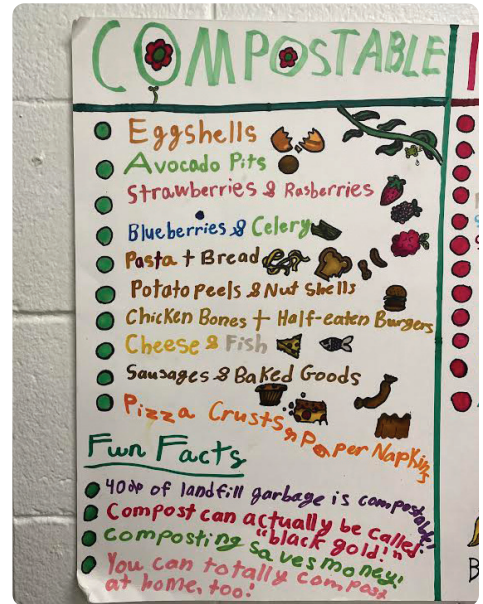 COMPOSTABLE
Eggshells
Avocado Pits
Strawberries & Rasberries
Blueberries & Celery
Pasta + Bread
Potato peels & Nut Shells
Chicken Bones + Half-eaten Burgers
Cheese & Fish
Sausages & Baked Goods
Pizza Crusts & Paper Napkins
Fun Facts
40% of landfill garbage is compostable!
Compost can actually be called
"black gold!"
Composting saves money!
You can totally compost
at home, too!